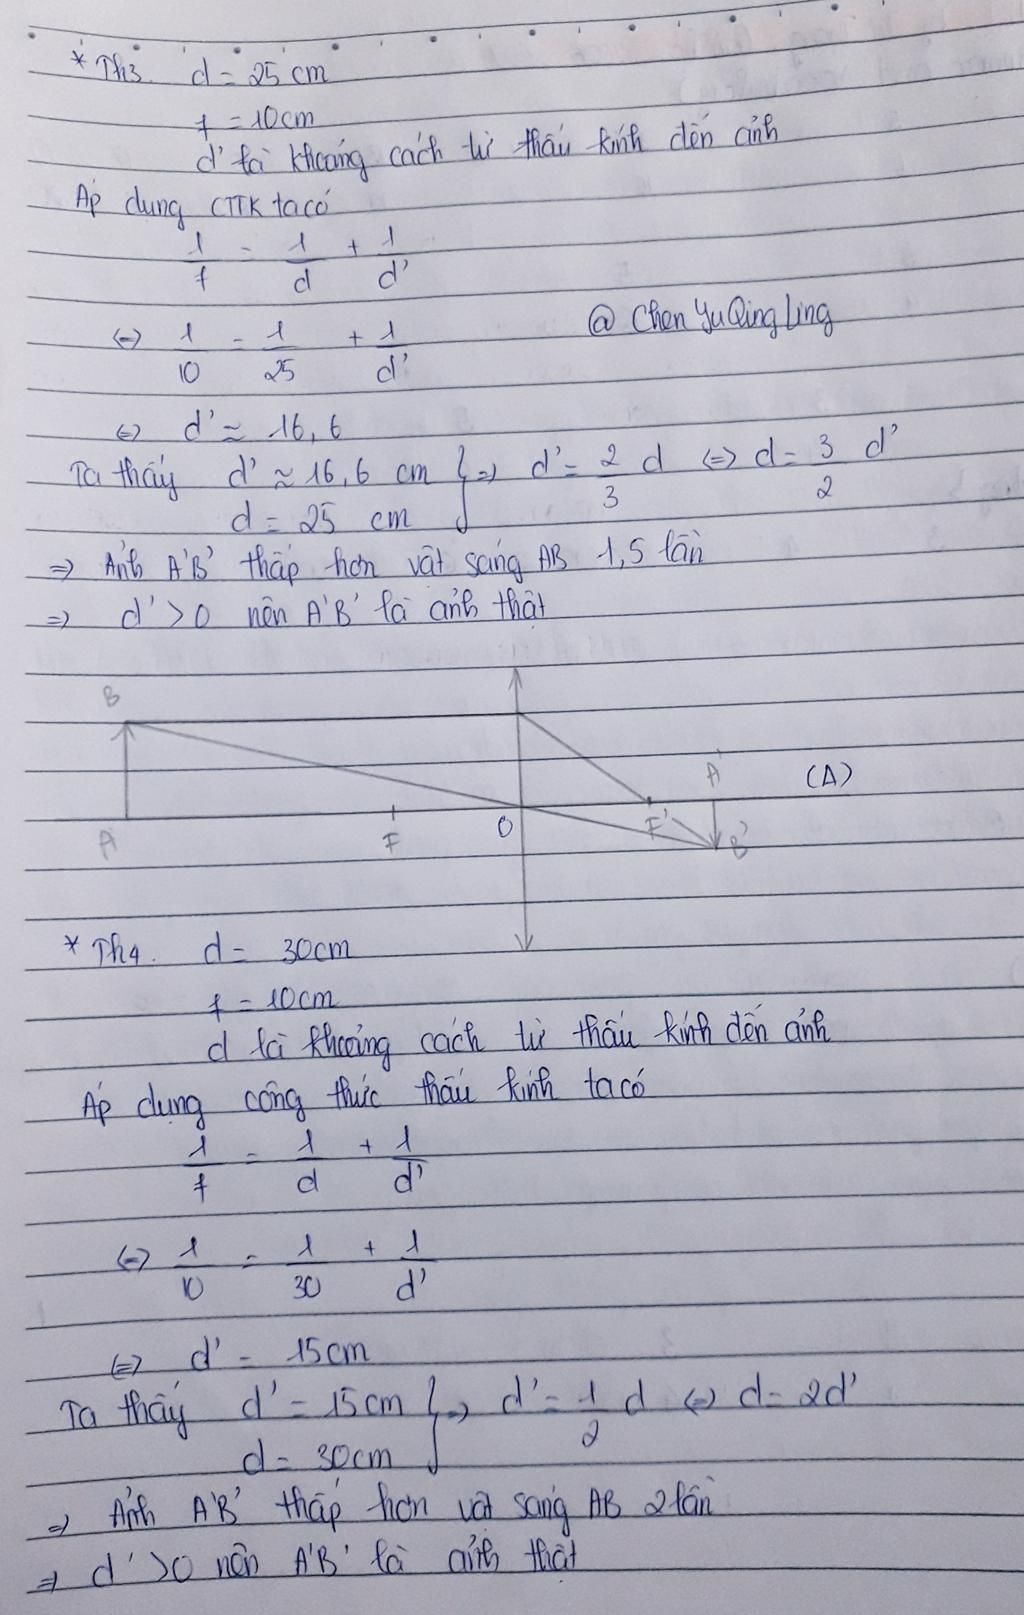 * Th3. d = 25 cm
f = 10cm
d' là khoảng cách từ thấu kính đến ảnh
Áp dụng CTTK ta có
1/f = 1/d + 1/d'
<=> 1/10 = 1/25 + 1/d'
@ Chen Yu Qing Ling
<=> d' ≈ 16,6
Ta thấy d' ≈ 16,6 cm } => d' = 2/3 d <=> d = 3/2 d'
d = 25 cm
=> Ảnh A'B' thấp hơn vật sáng AB 1,5 lần
=> d' > 0 nên A'B' là ảnh thật
B
A' (Δ)
A F O F' B'
* Th4. d = 30cm
f = 10cm
d là khoảng cách từ thấu kính đến ảnh
Áp dụng công thức thấu kính ta có
1/f = 1/d + 1/d'
<=> 1/10 = 1/30 + 1/d'
<=> d' = 15cm
Ta thấy d' = 15cm } => d' = 1/2 d <=> d = 2d'
d = 30cm
=> Ảnh A'B' thấp hơn vật sáng AB 2 lần
=> d' > 0 nên A'B' là ảnh thật